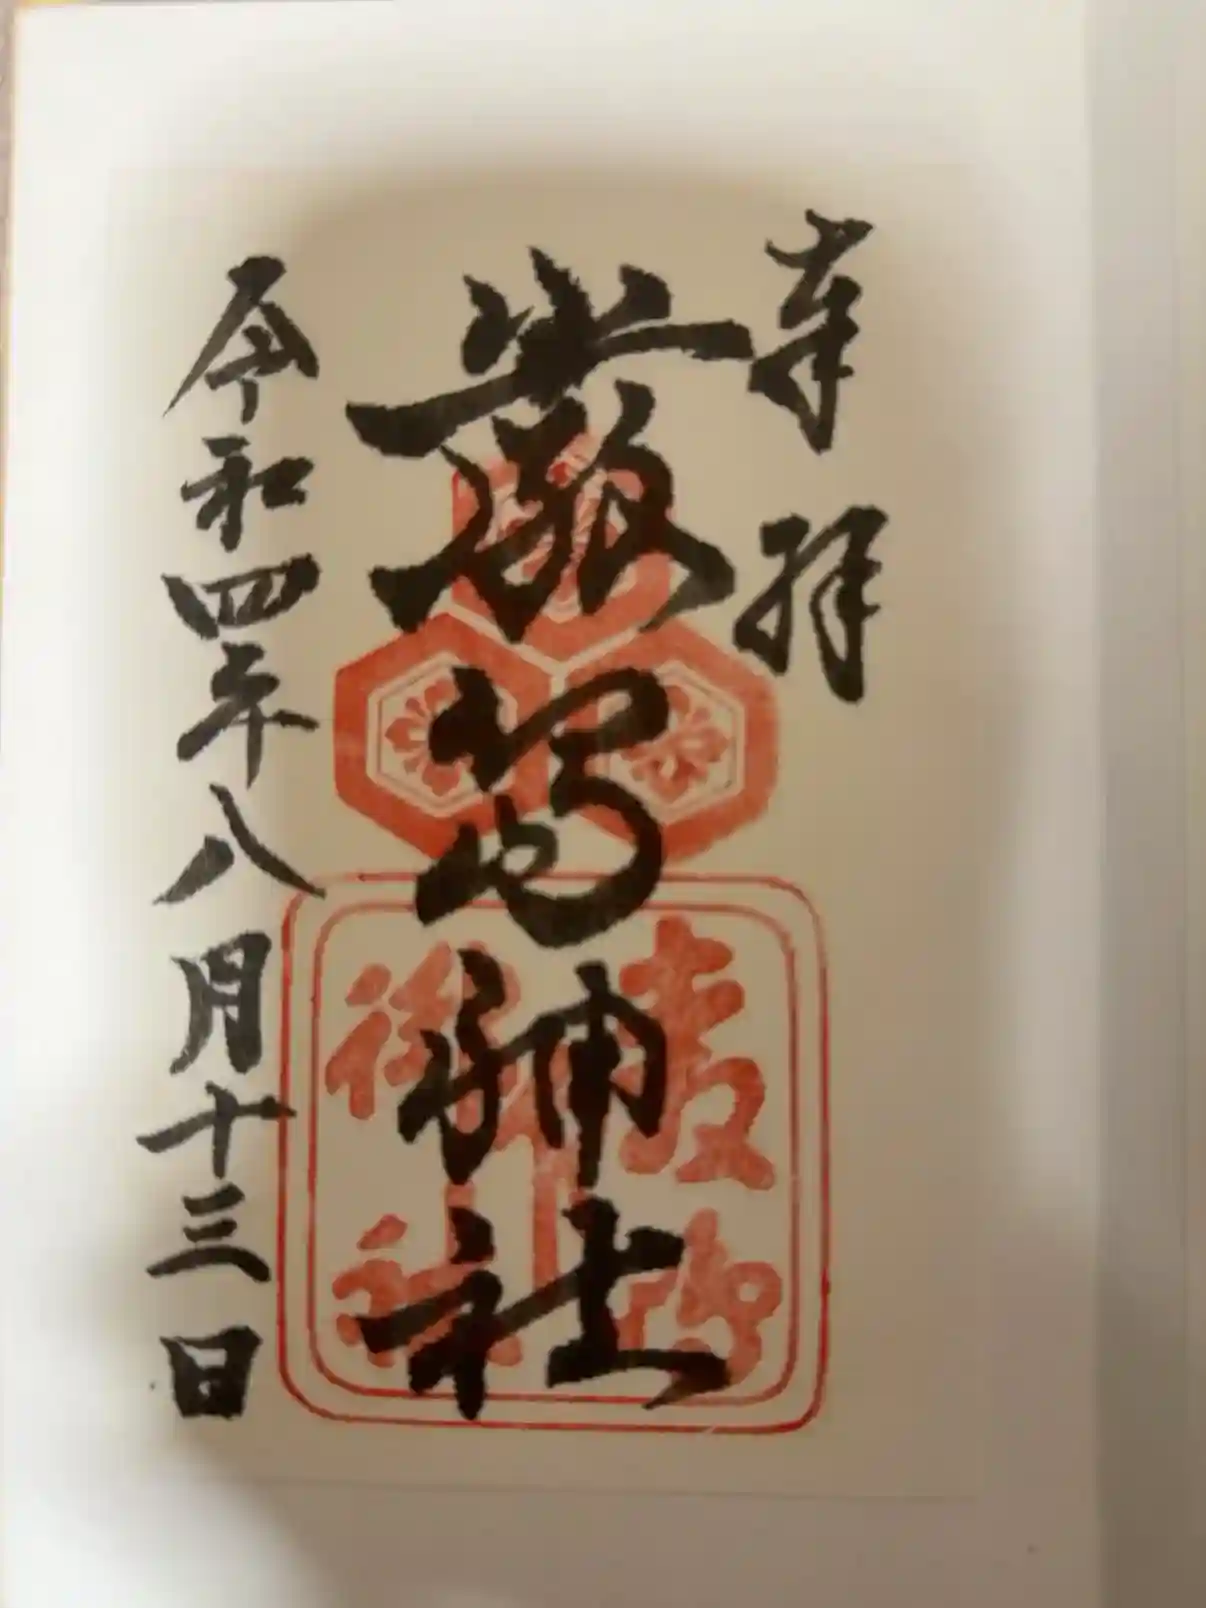 奉拝
厳島神社
令和四年八月十三日